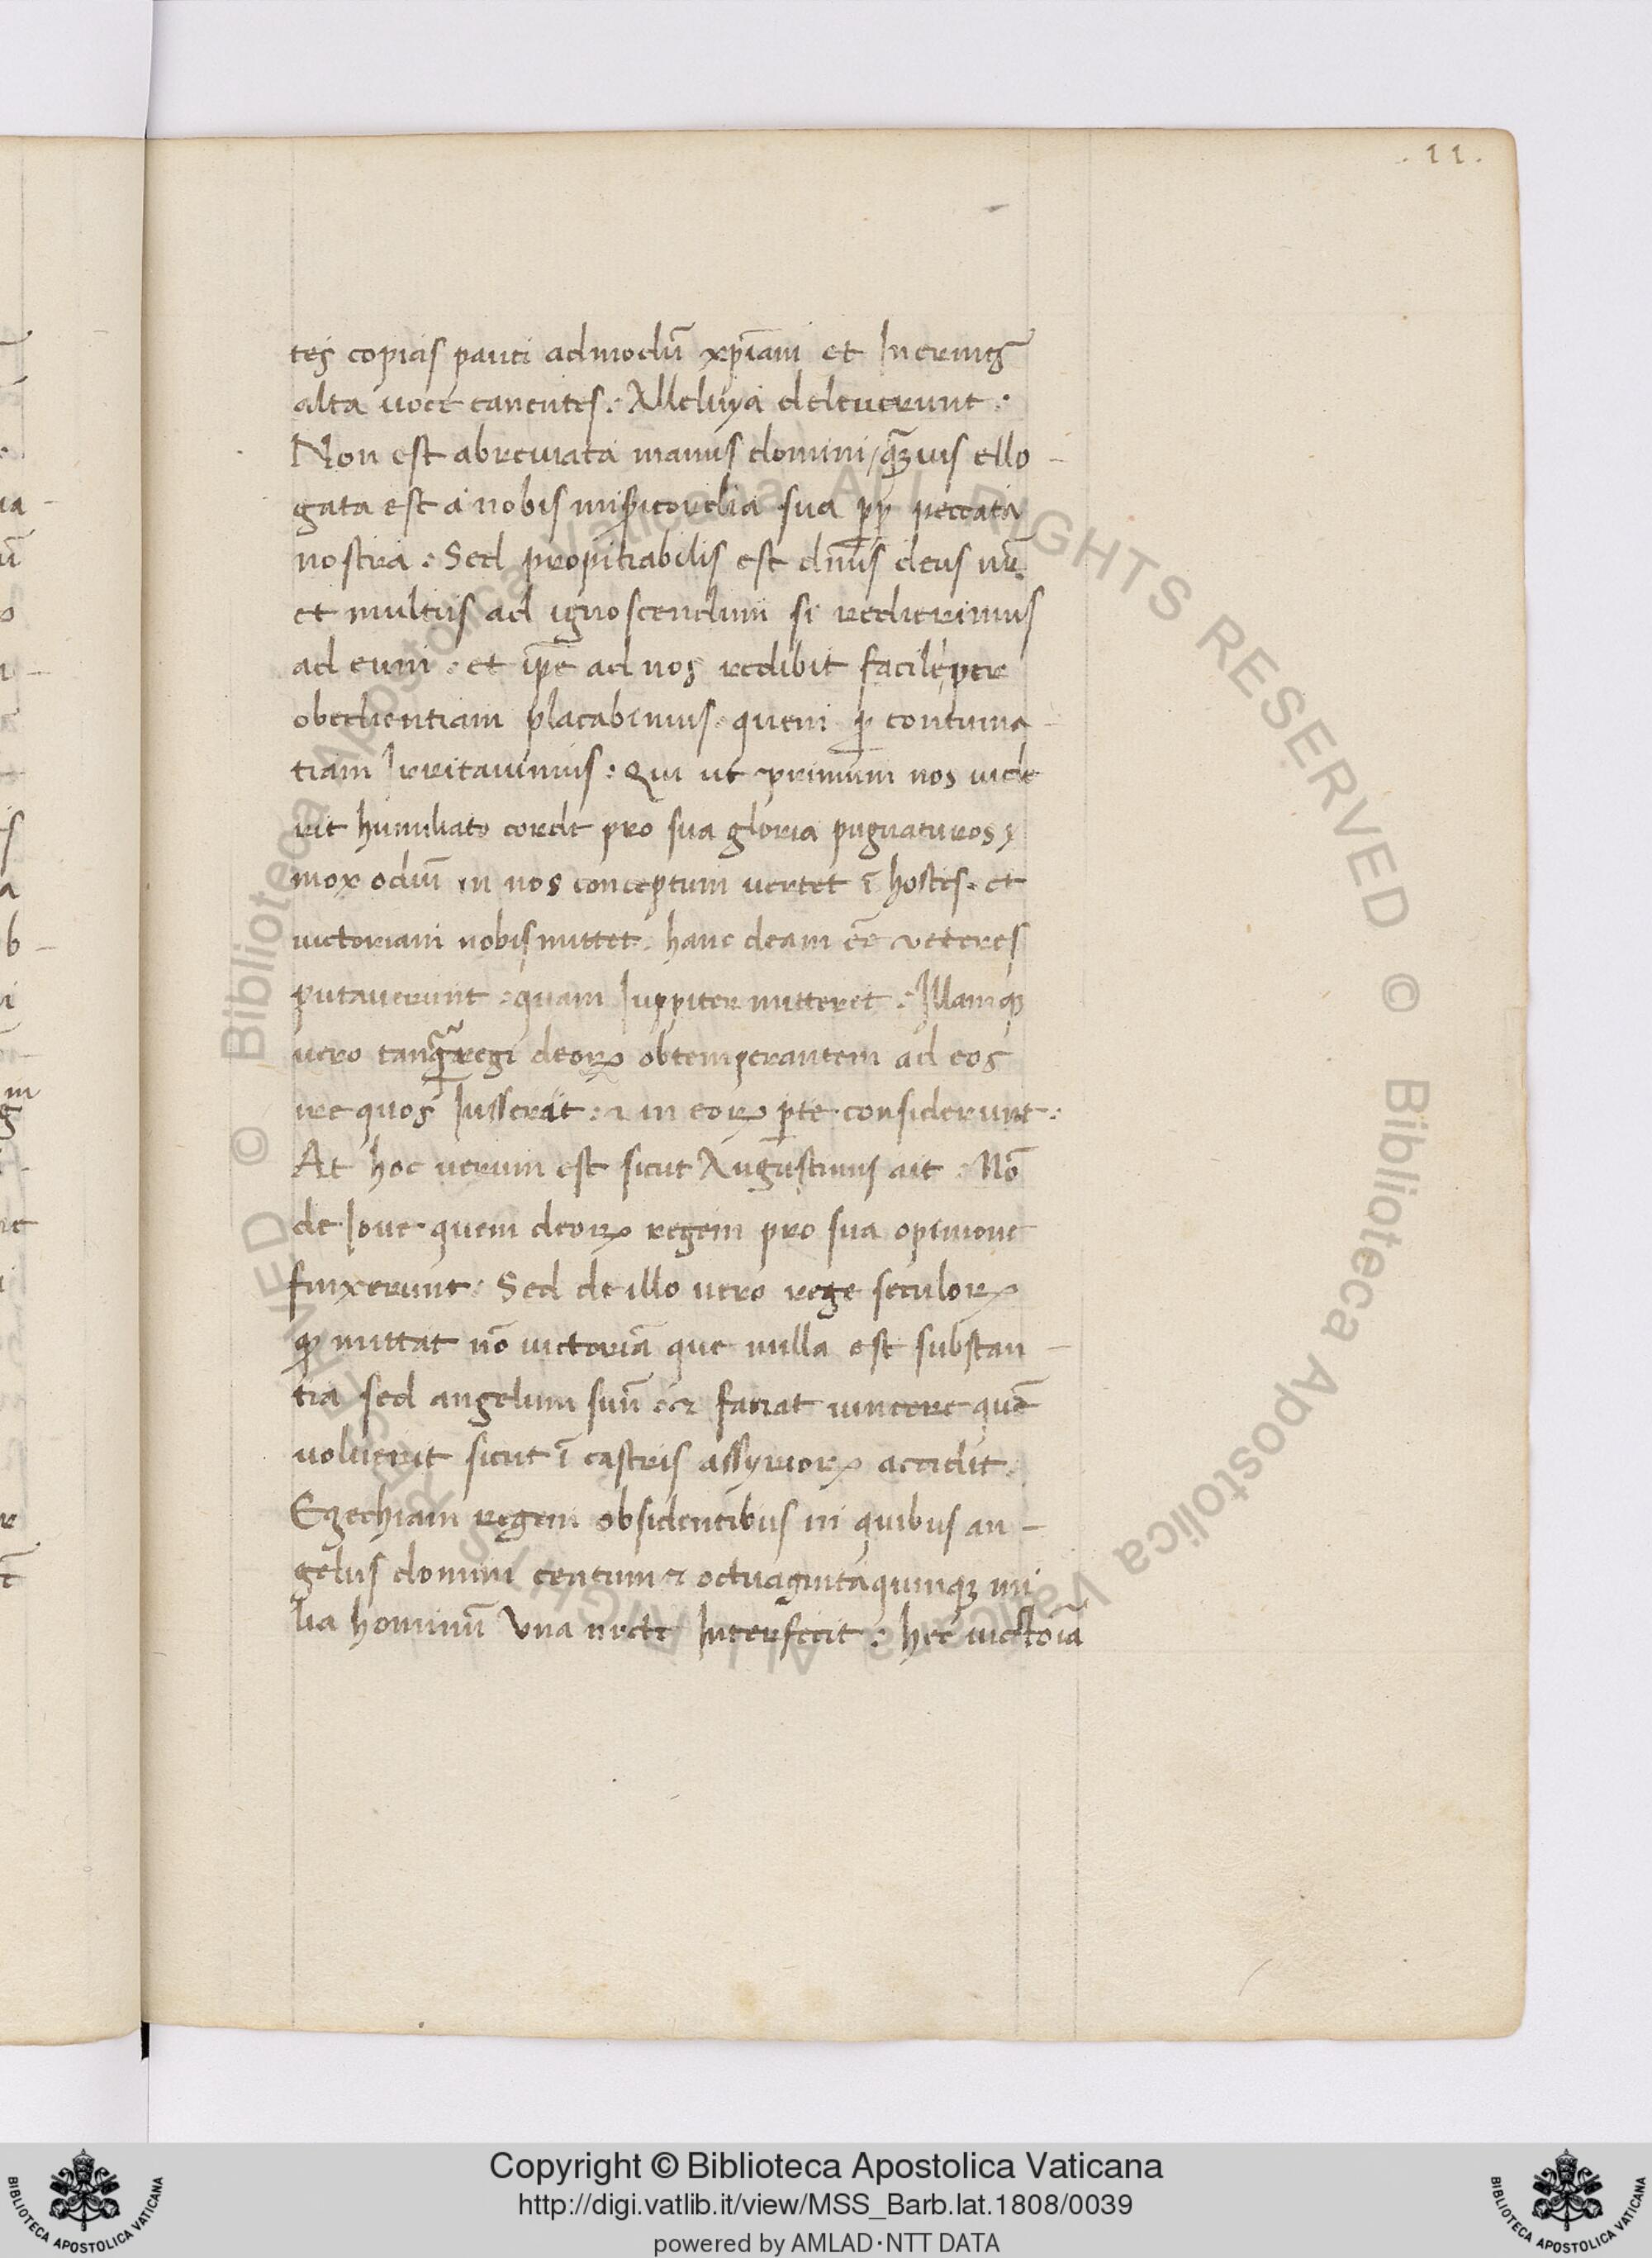 .11.
tes copias pauci admodū xp̄iani et Inermes
alta uoce canentes : Alleluya deleuerunt :
Non est abreuiata manus domini / q̄ȝuis ello -
gata est a nobis mīsicordia sua ꝓp̄ peccata
nostra : Sed propitiabilis est dn̄s deus nr̄
et multus ad ignoscendum si redierimus
ad eum . et ip̄e ad nos redibit facile per
obedientiam placabimus . quem ꝑ contuma -
tiam Irritauimus : Qui ut primum nos uide
rit humiliato corde pro sua gloria pugnaturos ,
mox odiū in nos conceptum uertet ī hostes . et
uictoriam nobis mittet . hanc deam eē veteres
putauerunt : quam Iuppiter mitteret : Illamqȝ
uero tanq̄ regi deorꝝ obtemperantem ad eos
ire quos Iusserat : & in eorꝝ ꝑte considerunt :
At hoc uerum est sicut Augustinus ait : Nō
de Ioue quem deorꝝ regem pro sua opinione
finxerunt . Sed de illo uero rege seculorꝝ
qȝ mittat nō uictoriā que nulla est substan -
tia sed angelum suū & faciat uincere quē
voluerit sicut ī castris assyriorꝝ accidit .
Ezechiam regem obsidentibus in quibus an -
gelus domini centum & octuaginta quinqȝ mi
lia hominū vna nocte Interfecit : hec uictoīa
Copyright © Biblioteca Apostolica Vaticana
http://digi.vatlib.it/view/MSS_Barb.lat.1808/0039
powered by AMLAD·NTT DATA
BIBLIOTECA APOSTOLICA VATICANA
BIBLIOTECA APOSTOLICA VATICANA
© Biblioteca Apostolica Vaticana ALL RIGHTS RESERVED © Biblioteca Apostolica Vaticana ALL RIGHTS RESERVED